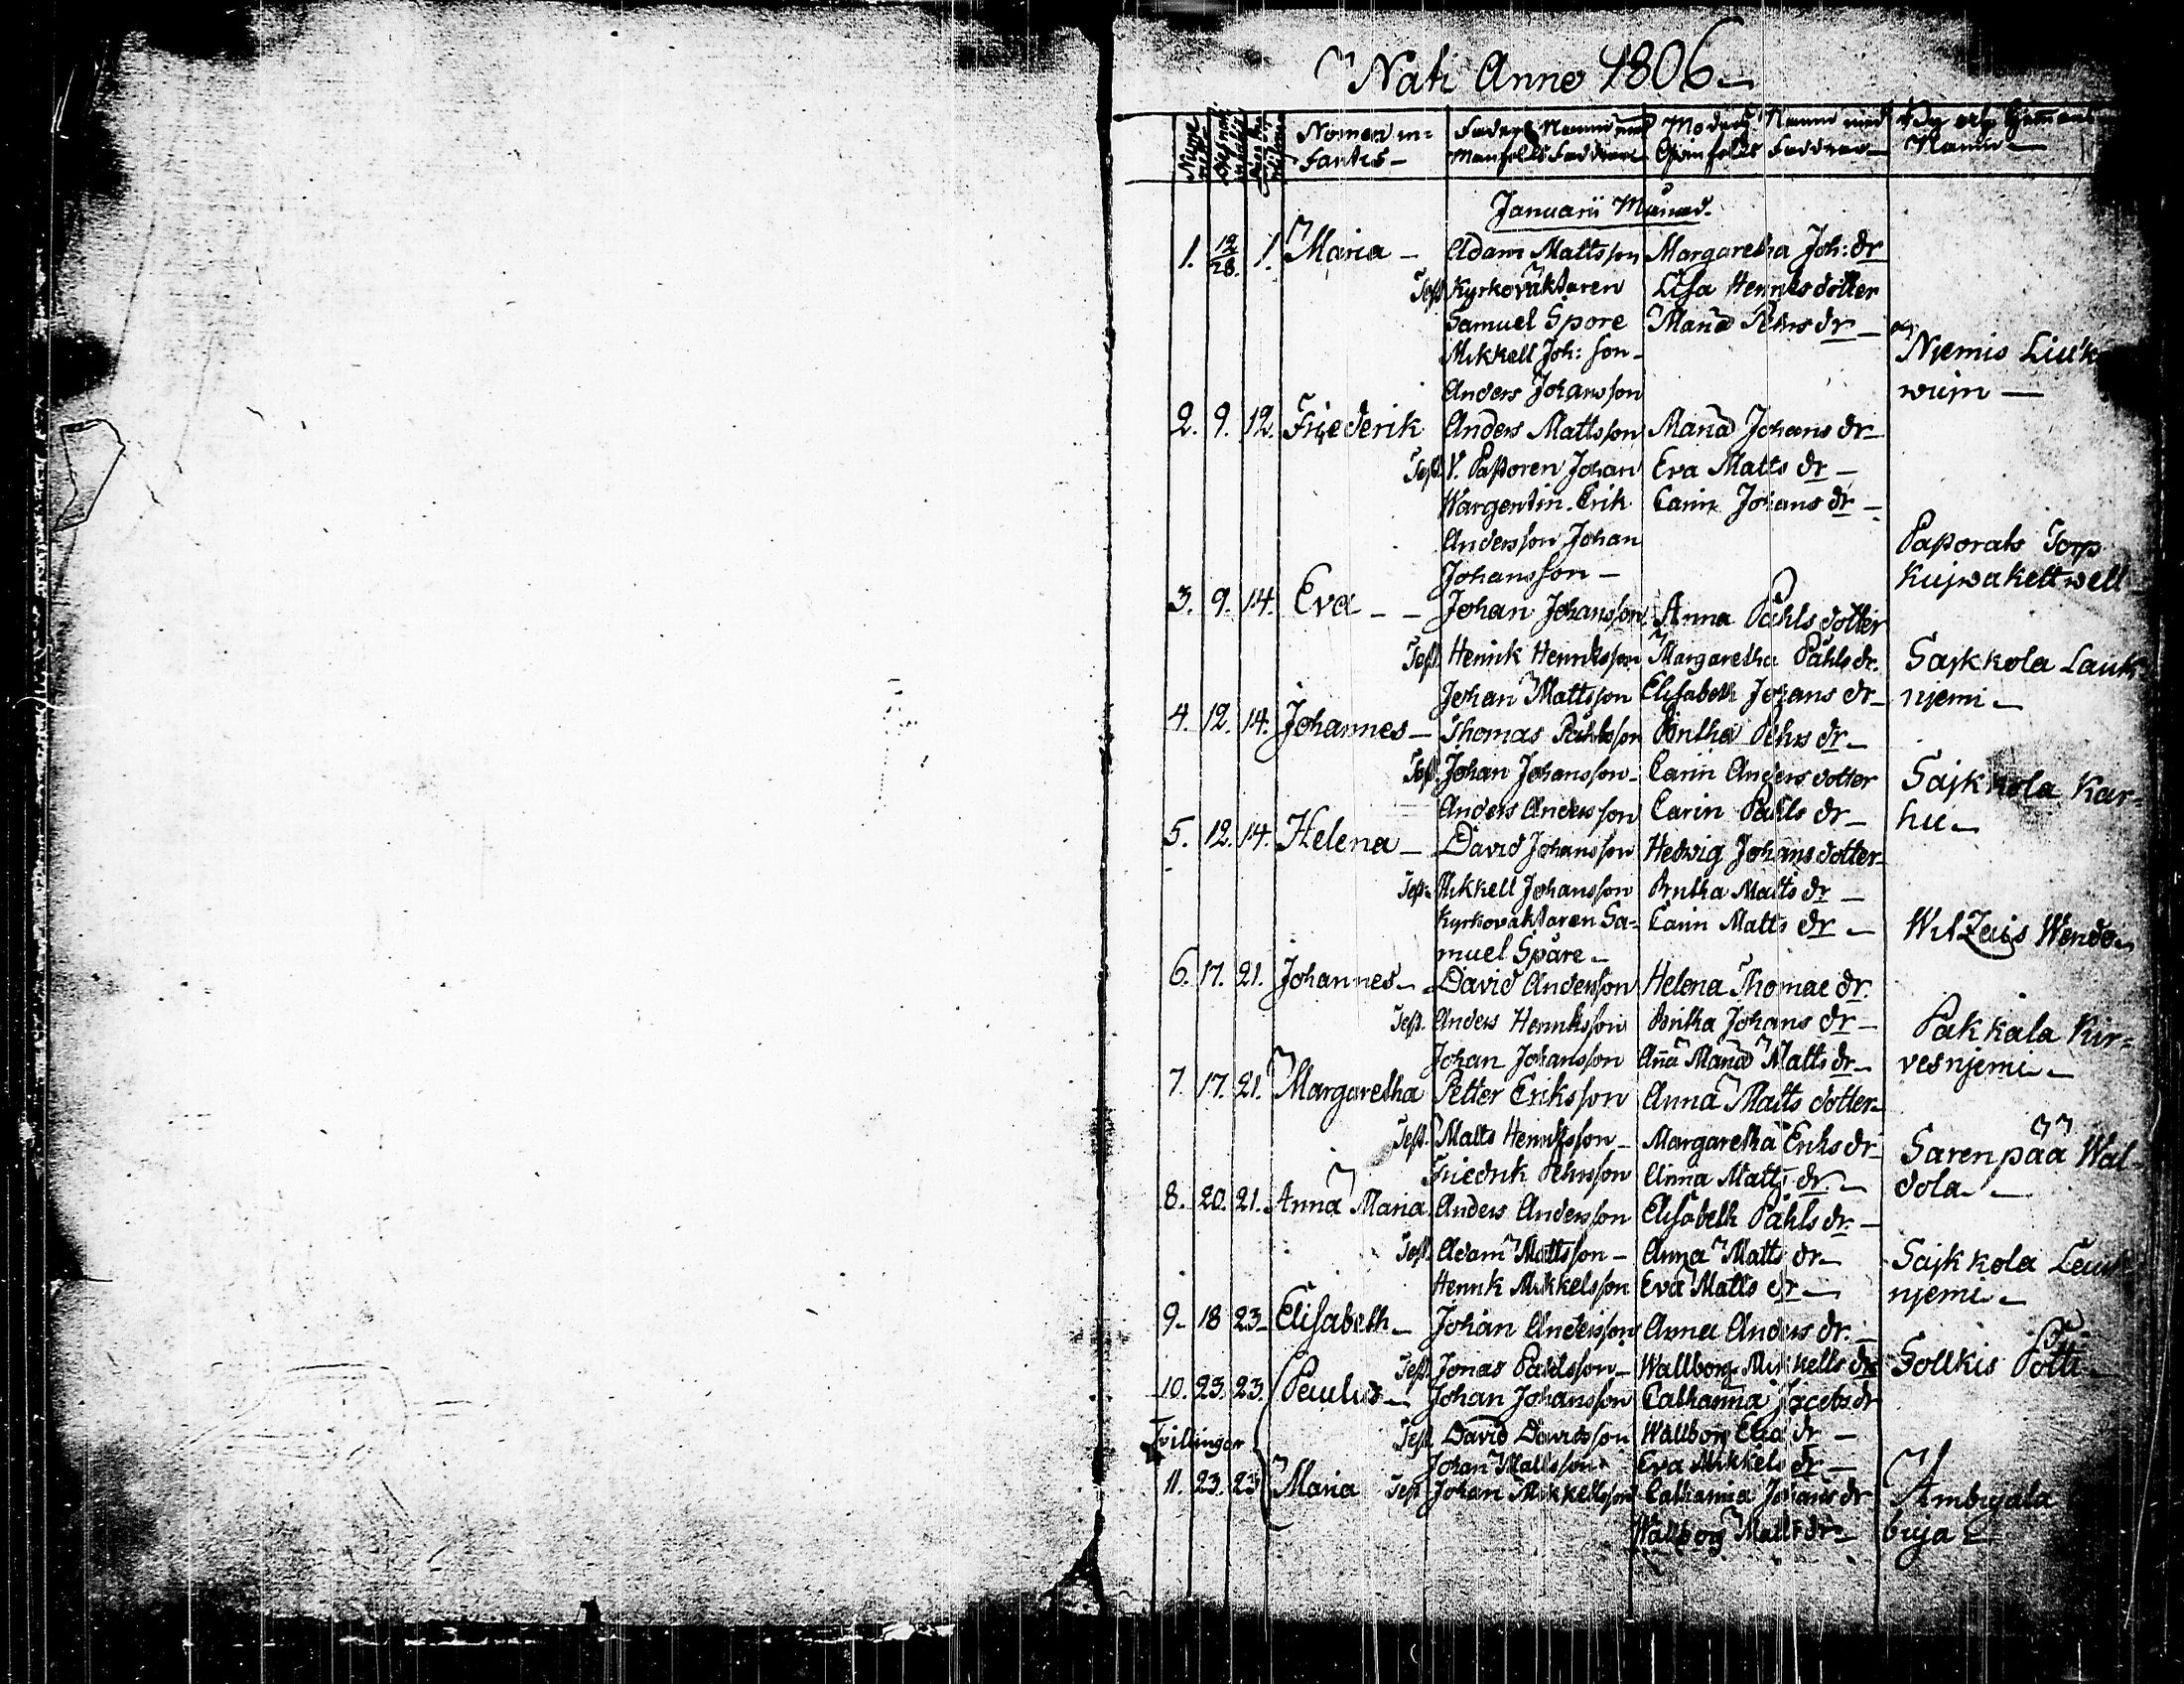 Nati Anno 1806 –
Nomen in= Faders Namn med Moders Namn med By och Hemmans
fantis – Manfolks Faddrar Qvinfolks Faddrar – Namn –
Januarii Månad.
1. 12/28. 1. Maria – Adam Mattsson Margaretha Joh: dr
Test. Kyrkovaktaren Lisa Henriksdotter
Samuel Spore Maria Pehrs dr –
Mikkell Joh: son – Njemis Liuk
Anders Johansson wuin –
2. 9. 12. Friederik Anders Mattsson Maria Johans dr –
Test. V. Pastoren Johan Eva Matts dr –
Wargentin. Erik Carin Johans dr –
Andersson Johan Pastorats Torp
Johansson – Kujwakettwell
3. 9. 14. Eva – – Johan Johansson Anna Påhls dotter
Test. Henrik Henriksson Margaretha Påhls dr. Sajkkola Lauk
Johan Mattsson Elisabeth Johans dr – njemi –
4. 12. 14. Johannes – Thomas Påhlsson Britha Pehrs dr –
Test. Johan Johansson – Carin Anders dotter Sajkkola Kar=
Anders Andersson Carin Påhls dr – hu –
5. 12. 14. Helena – David Johansson Hedwig Johans dotter –
Test. Mikkell Johansson Britha Matts dr –
Kyrkovaktaren Sa= Carin Matts dr – Wendo
muel Spåre –
6. 17. 21. Johannes – David Andersson Helena Thomae dr.
Test. Anders Henriksson Britha Johans dr – Pakkala Kir=
Johan Johansson Aña Maria Matts dr – vesnjemi –
7. 17. 21. Margaretha Petter Eriksson Anna Matts dotter –
Test. Matts Henriksson – Margaretha Eriks dr – Sarenpää Wal=
Friedrik Pehrsson Anna Matts dr – dola –
8. 20. 21. Anna Maria Anders Andersson Elisabeth Påhls dr. –
Test. Adam Mattsson – Anna Matts dr – Sajkkola Lauk
Henrik Mikkelsson Eva Matts dr – njemi –
9 – 18 23 – Elisabeth – Johan Andersson Anna Anders dr. –
Test. Jonas Påhlsson – Wallborg Mikkells dr Sollkis Pötti –
10. 23. 23. Paulus – Johan Johansson Catharina Jacobs dr
Tvillingar Test. David Davidsson Wallborg Elia dr –
Johan Mattsson. Eva Mikkels dr –
11. 23. 23 Maria Test Johan Mikkellsson Catharina Johans dr
Wallborg Matts dr –